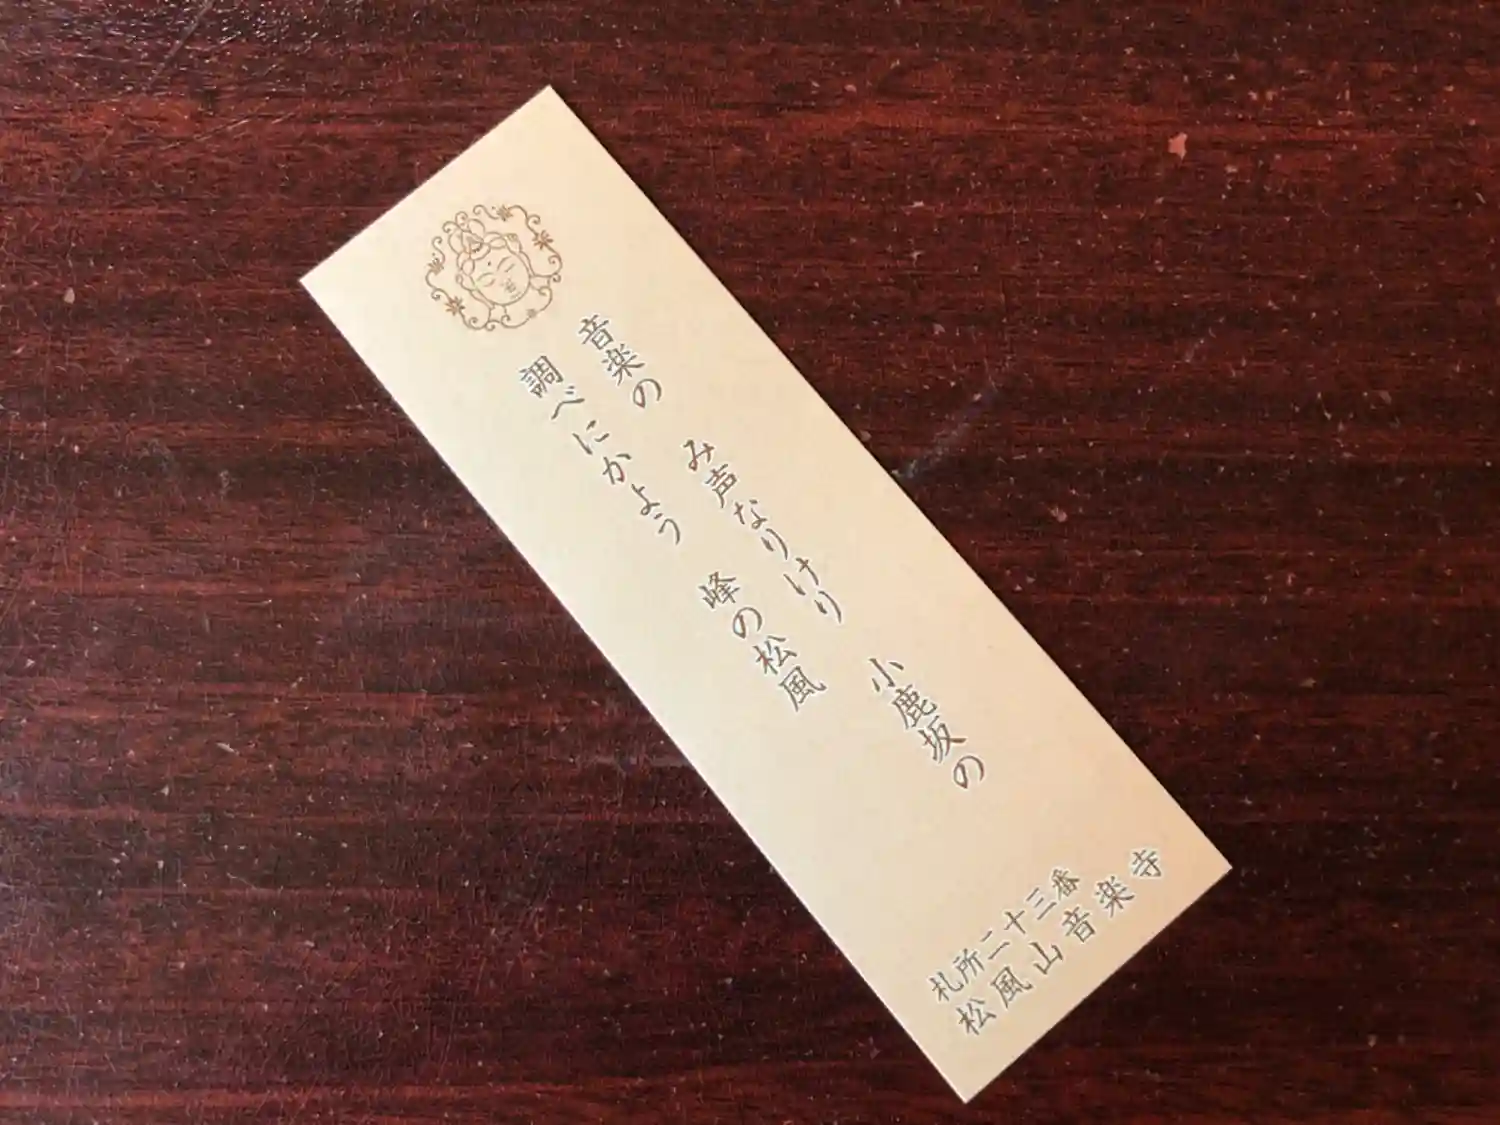 音楽の　み声なりけり　小鹿坂の
調べにかよう　峰の松風
札所二十三番
松風山音楽寺